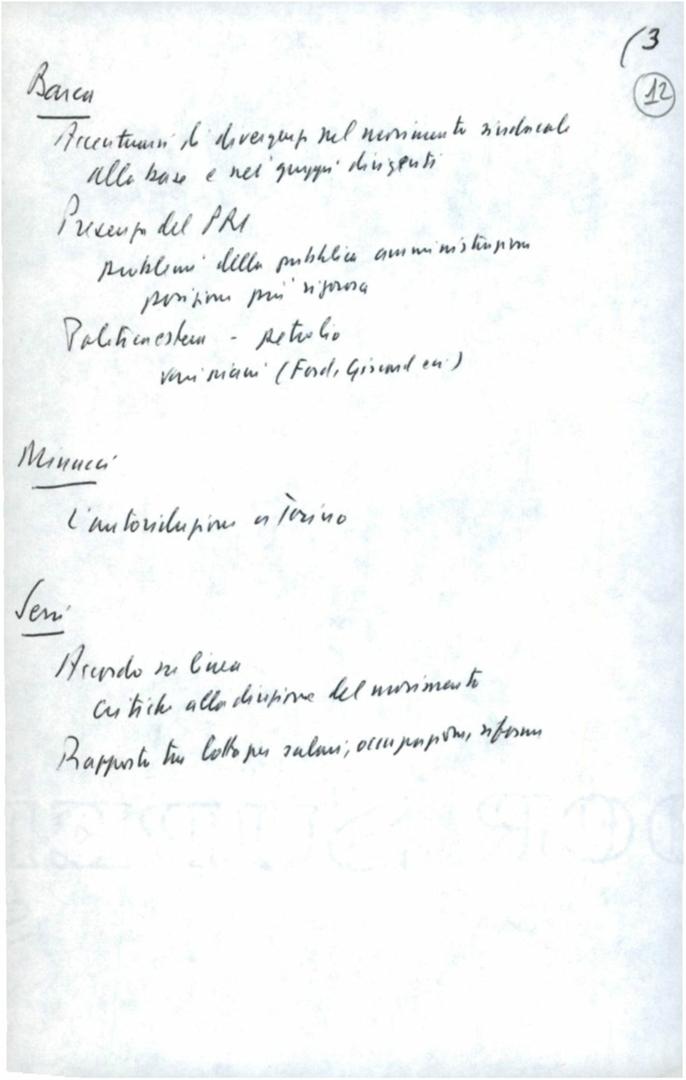 (3
12
Barca
Accentuarsi di divergenze nel movimento sindacale
alla base e nei gruppi dirigenti
Presenza del PRI
problemi della pubblica amministrazione
posizione più rigorosa
Politica estera - petrolio
(Ford, Giscard ecc.)
Minucci
L'autoriduzione a Torino
Serri
Accordo su linea
critiche alla direzione del movimento
Rapporto tra lotta per salari, occupazione, riforme